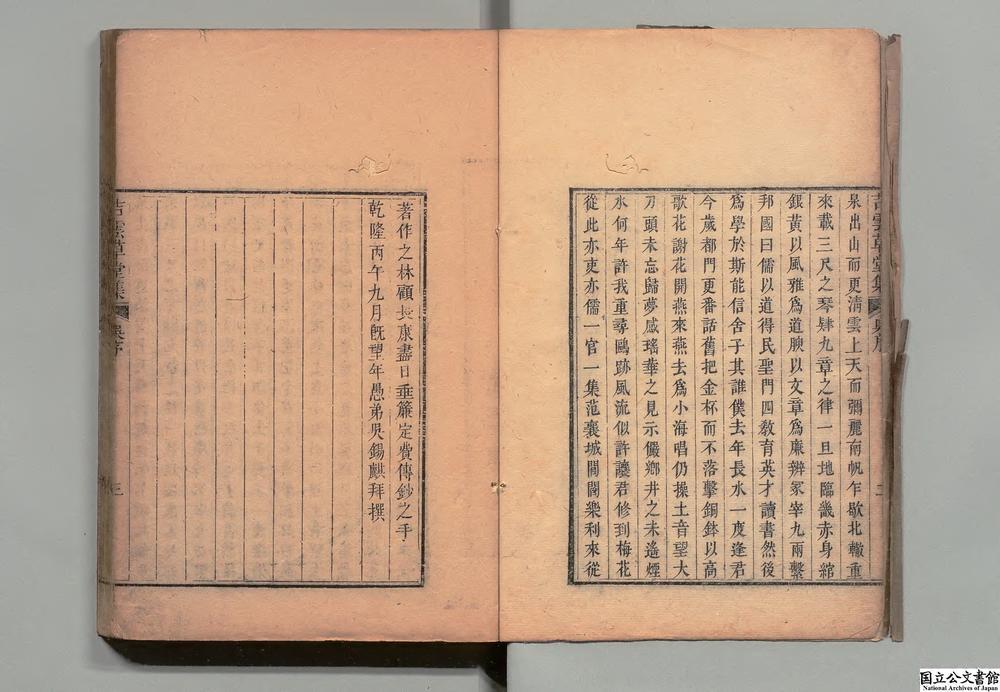 泉出山而更清雲上天而彌麗南帆乍歇北轍重
來載三尺之琴肄九章之律一旦地臨畿赤身綰
銀黃以風雅爲道腴以文章爲廉辨冢宰九兩繫
邦國曰儒以道得民聖門四敎育英才讀書然後
爲學於斯能信舍子其誰僕去年長水一度逢君
今歲都門更番話舊把金杯而不落擊銅鉢以高
歌花謝花開燕來燕去爲小海唱仍操土音望大
刀頭未忘歸夢感瑤華之見示儼鄉井之未遙煙
水何年許我重尋鷗跡風流似許讓君修到梅花
從此亦吏亦儒一官一集范襄城閭閻樂利來從
著作之林顧長康盡日垂簾定費傳鈔之手
乾隆丙午九月旣望年愚弟吳錫麒拜撰
吉雲草堂集
吳序
三
吉雲草堂集
吳序
二
国立公文書館
National Archives of Japan